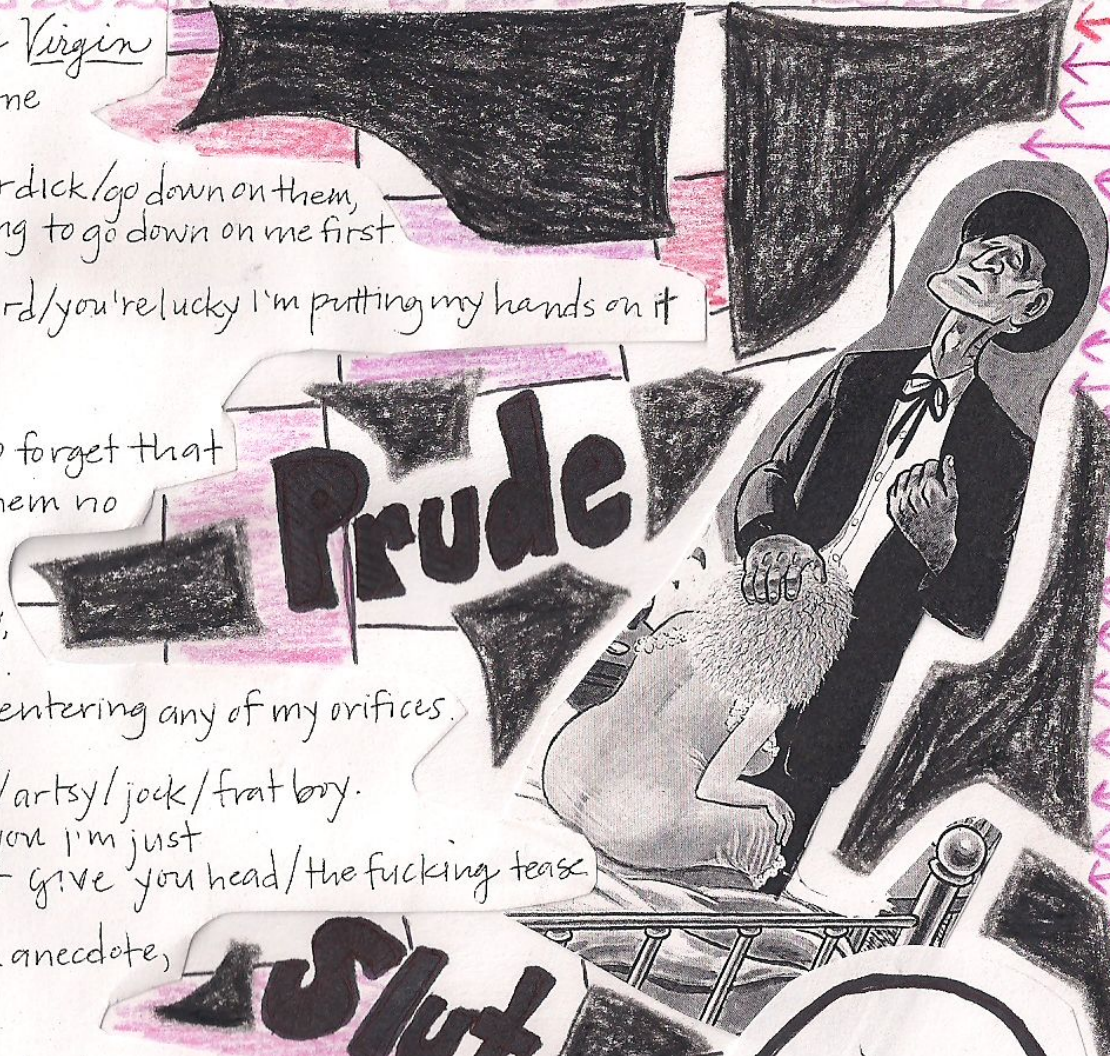 Virgin
ne
dick/go down on them,
ng to go down on me first
rd/you're lucky I'm putting my hands on it
forget that
Prude
hem no
entering any of my orifices.
/artsy/jock/frat boy.
you I'm just
give you head/the fucking tease
anecdote,
Slut